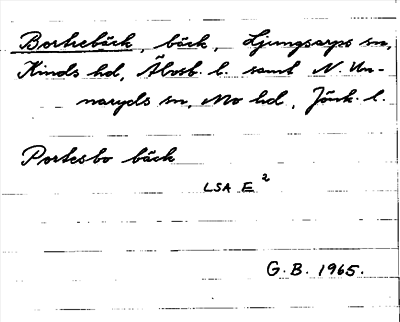 Borkebäck, bäck, Ljungsarps sn,
Kinds hd, Älvsb. l. samt N Un-
naryds sn, Mo hd, Jönk. l.
Porkesbo bäck
LSA E²
G.B. 1965.